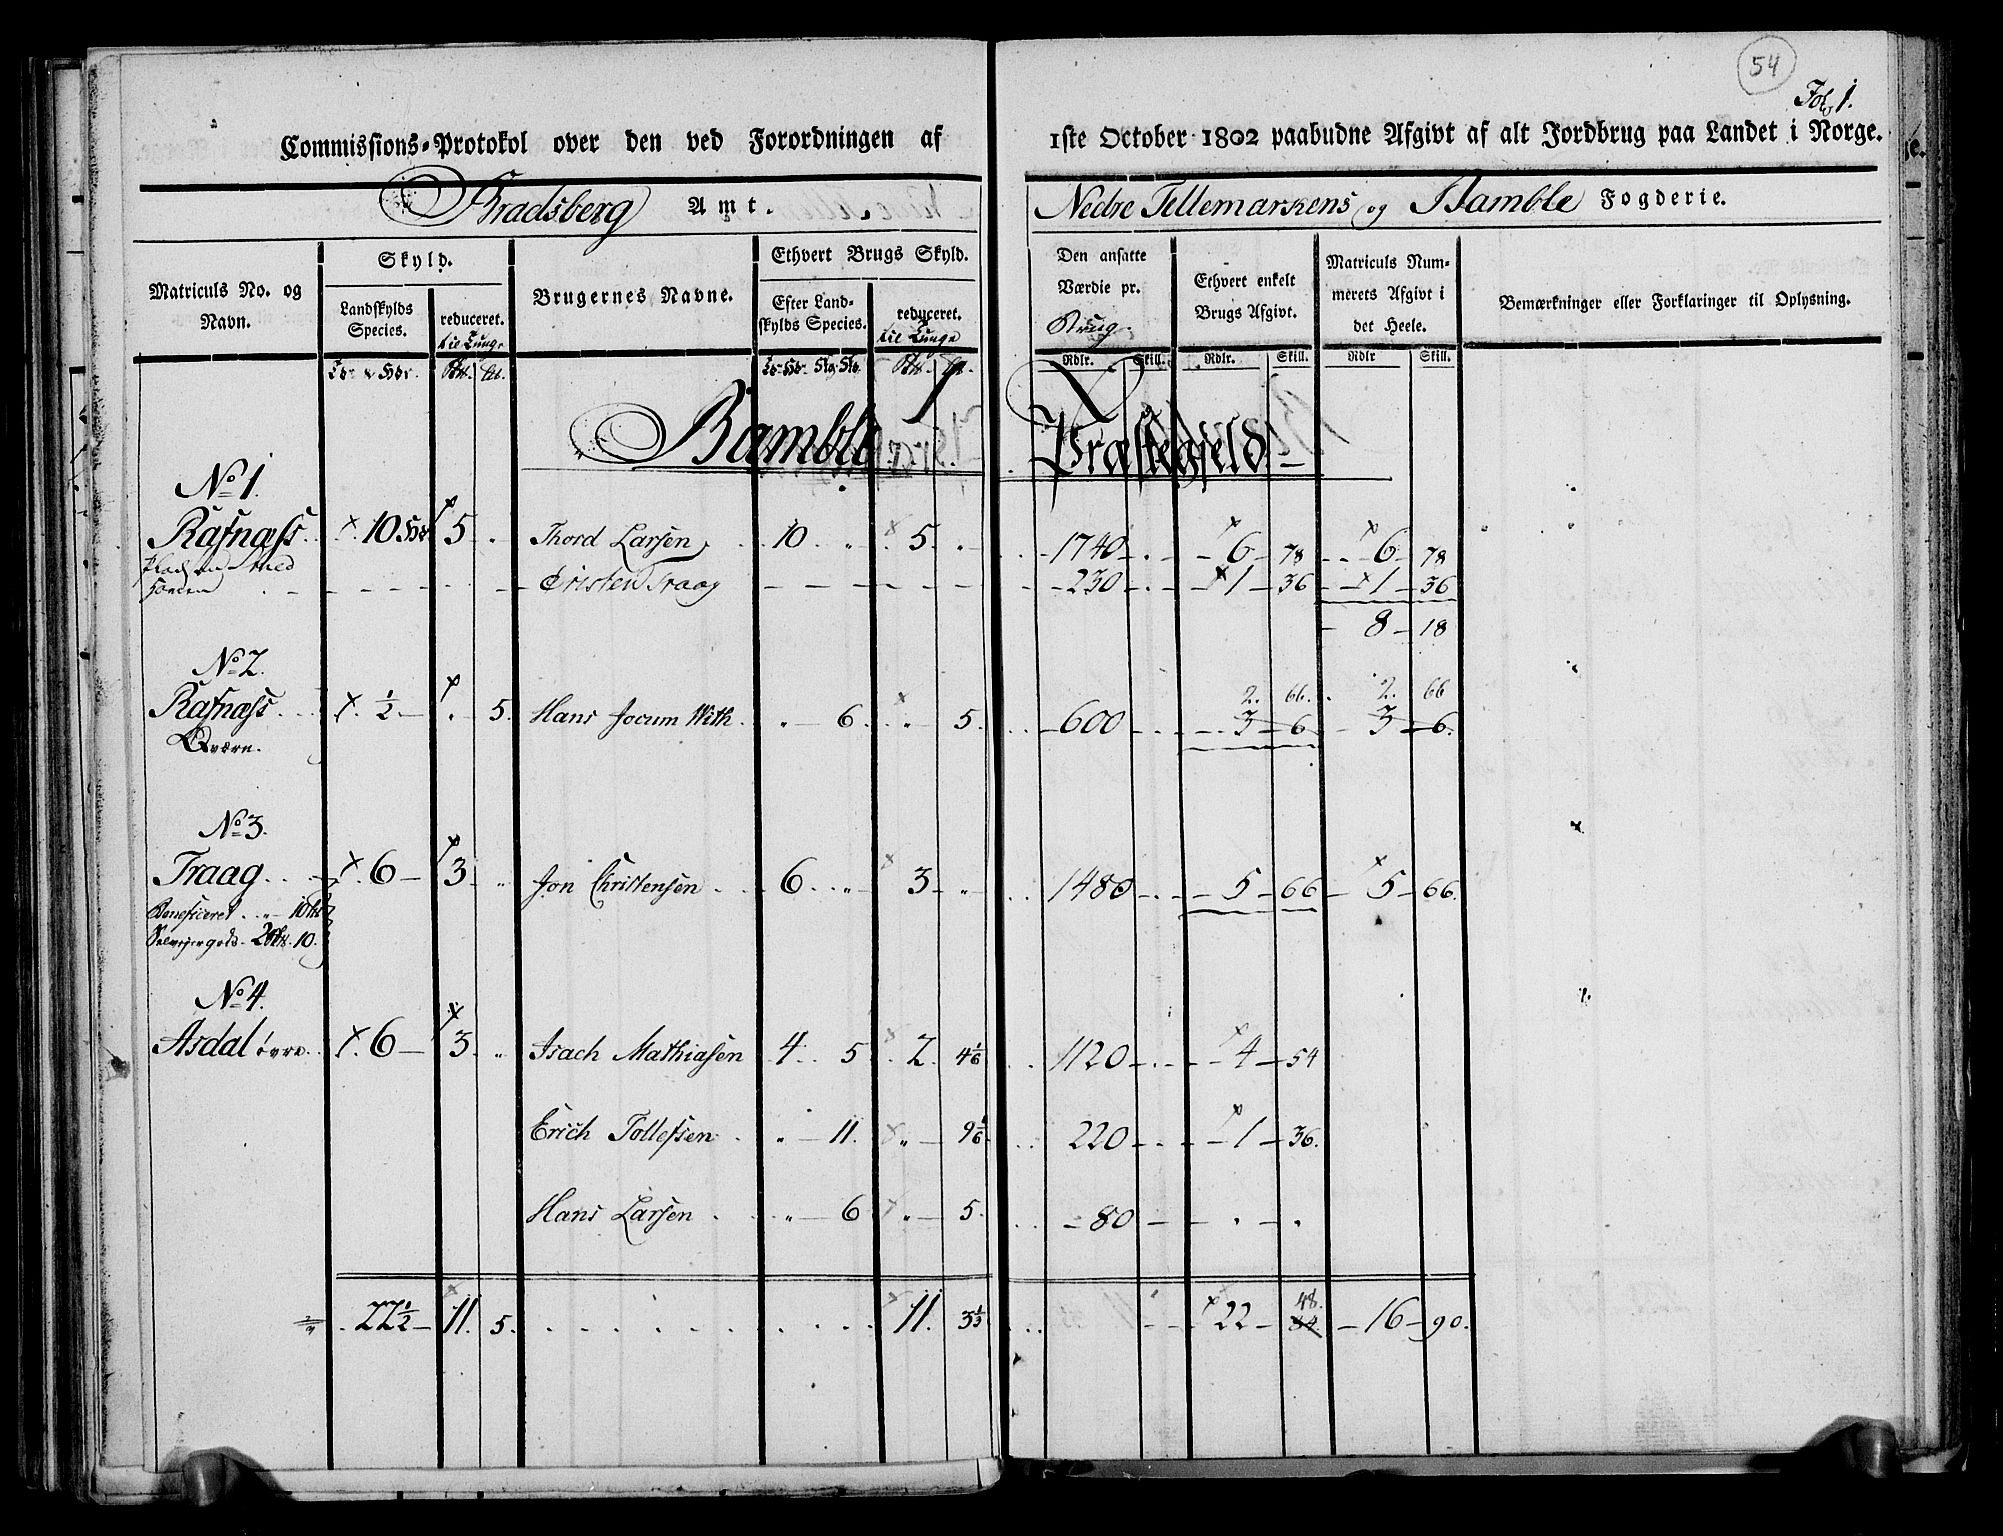 54
Fol. 1.
Commissions-Protokol over den ved Forordningen af 1ste October 1802 paabudne Afgivt af alt Jordbrug paa Landet i Norge.
Bradsberg Amt. Nedre Tellemarkens og Bamble Fogderie.
Matriculs No. og Navn.
Skyld.
Landskylds Species.
reduceret. til Tunge
Brugernes Navne.
Ethvert Brugs Skyld.
Efter Landskylds Species.
reduceret. til Tunge
Den ansatte Værdie pr. Brug.
Ethvert enkelt Brugs Afgivt.
Matriculs Nummerets Afgivt i det Heele.
Bemærkninger eller Forklaringer til Oplysning.
Rdlr. Skill. Rdlr. Skill. Rdlr Skill.
Bamble Præstegield
No 1.
Rafnæss 10 Hdr 5 Thord Larsen 10 5 1740 6 78 6 78
Pladsen med
Cristen Traag 230 1 36 1 36
8 18
No 2.
2 66 2 66
Rafnæss ½ 5. Hans Jocum With 6 5. 600 3 6 3 6.
Qværn.
No 3.
Traag 6 3 Jon Christensen 6 3 1480 5 66 5 66.
Beneficeret 10
10.
No 4.
Asdal øvre 6 3 Isach Mathiasen 4 5 2 4 1/6 1120 4 54
Erich Tollefsen 11. 9 1/6 220 1 36.
Hans Larsen 6 5. 80
48.
22½ 11. 5. 11. 3⅓ 22 84. 16 90.